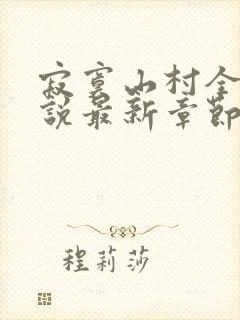 寂寞山村全
說最新章節
程莉莎